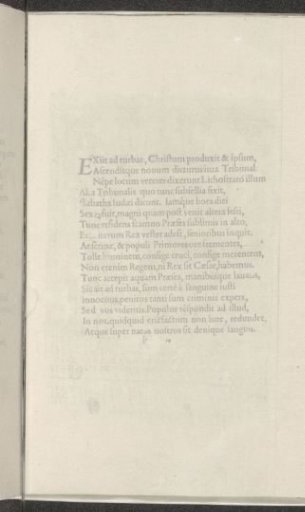 EXiit ad turbas, Christum produxit & ipsum,
Ascenditque nouum dicturus ima Tribunal.
Nepe locum veteres dixerunt Lithostraton illum
Alta Tribunalis quo tunc subsellia fixit,
Gabatha Iudæi dicunt. Iamque hora diei
Sex, magni quam post venit altera festi,
Tunc residens Præses sublimis in alto,
En, iterum Rex vester adest, senioribus inquit.
At seniore, & populi Primores
Tolle hominem, confige cruci, confige merentem,
Non etenim Regem, ni Rex sit Cæsar, habemus.
Tunc accepit aquam Præses, manibusque
Sic ait ad turbas, sum verè à sanguine iusti
Innocuus, penitus tanti sum criminis expers,
Sed vos videritis. Populus respondit ad illud,
In nos, quodquid erit factum non iure, redundet,
Atque super natos nostros sit denique sanguis.